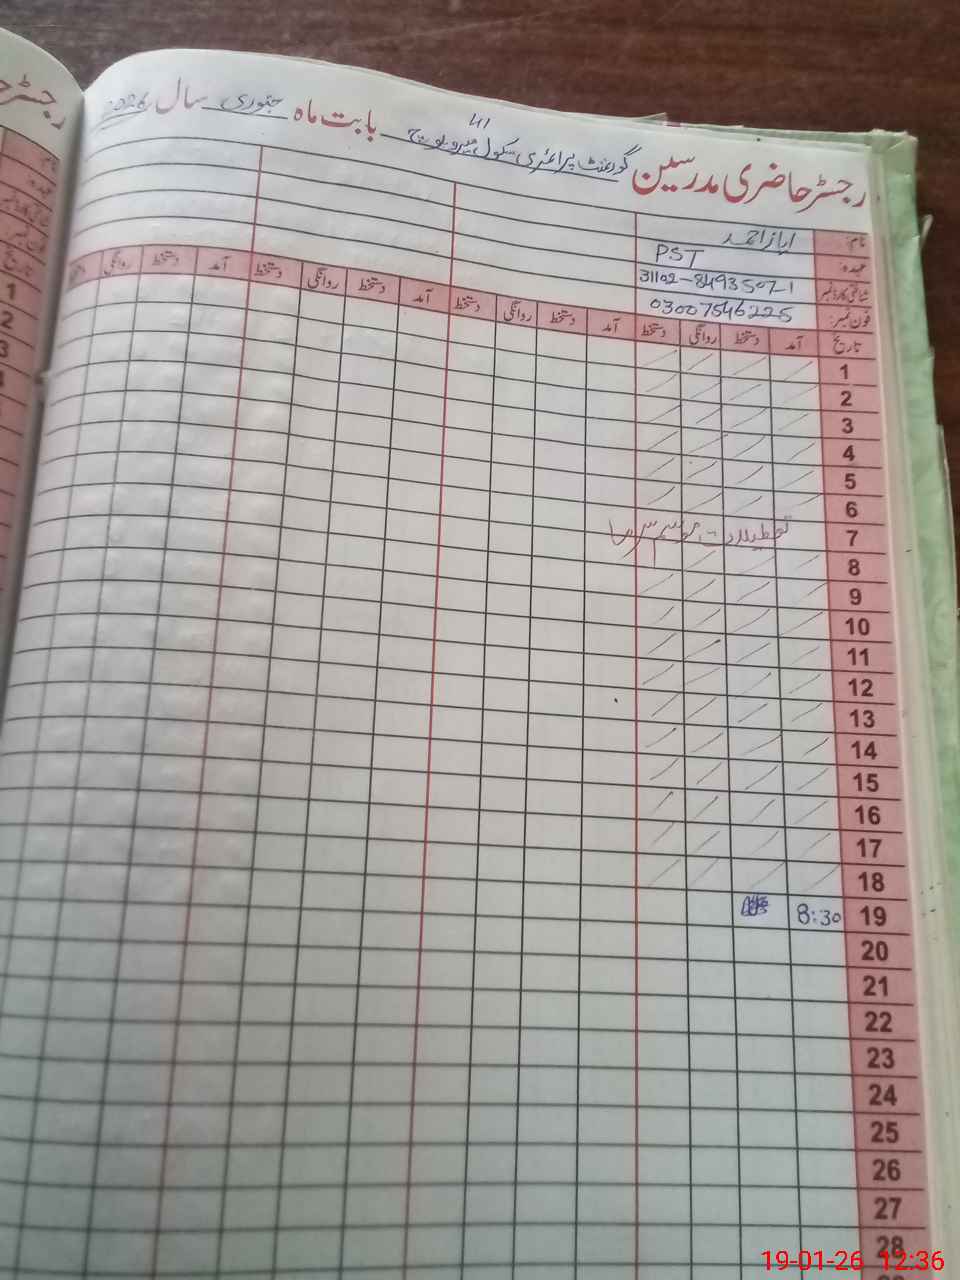 رجسٹر حاضری مدرسین گورنمنٹ پرائمری سکول بابت ماہ جنوری سال 2026
نام: ایاز احمد
عہدہ: PST
شناختی کارڈ نمبر 31102-8493507-1
فون نمبر: 03007546225
تاریخ آمد دستخط روانگی دستخط آمد دستخط روانگی دستخط آمد دستخط روانگی دستخط آمد دستخط روانگی دستخط
1
2
3
4
5
6
7 تعطیلات موسم سرما
8
9
10
11
12
13
14
15
16
17
18
19 8:30
20
21
22
23
24
25
26
27
28
رجسٹر
نام:
عہدہ:
شناختی کارڈ نمبر
فون نمبر:
تاریخ
1
2
3
4
19-01-26 12:36